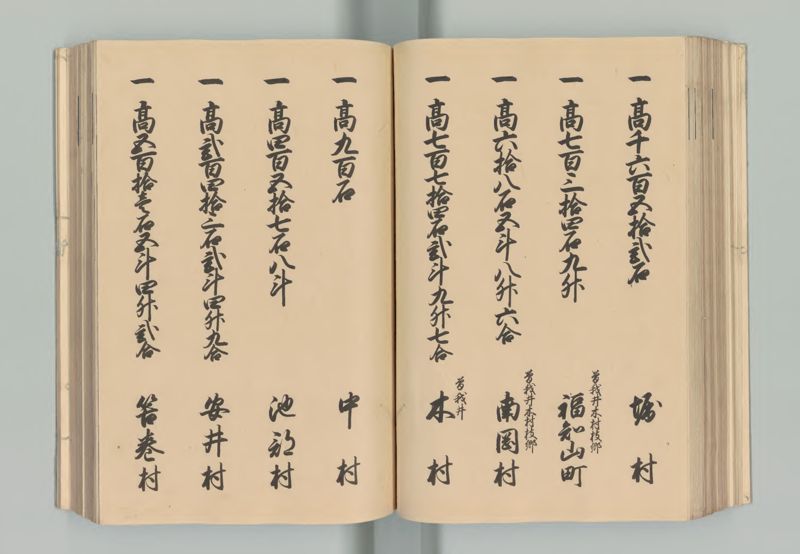 一 高千六百五拾弐石 堀村
一 高七百三拾四石九升 曽我井木村枝郷 福知山町
一 高六拾八石五斗八升六合 曽我井木村枝郷 南岡村
一 高七百七拾四石弐斗九升七合 曽我井 木村
一 高九百石 中村
一 高四百五拾七石八斗 池部村
一 高弐百四拾三石弐斗四升九合 安井村
一 高五百拾壱石五斗四升弐合 筈巻村